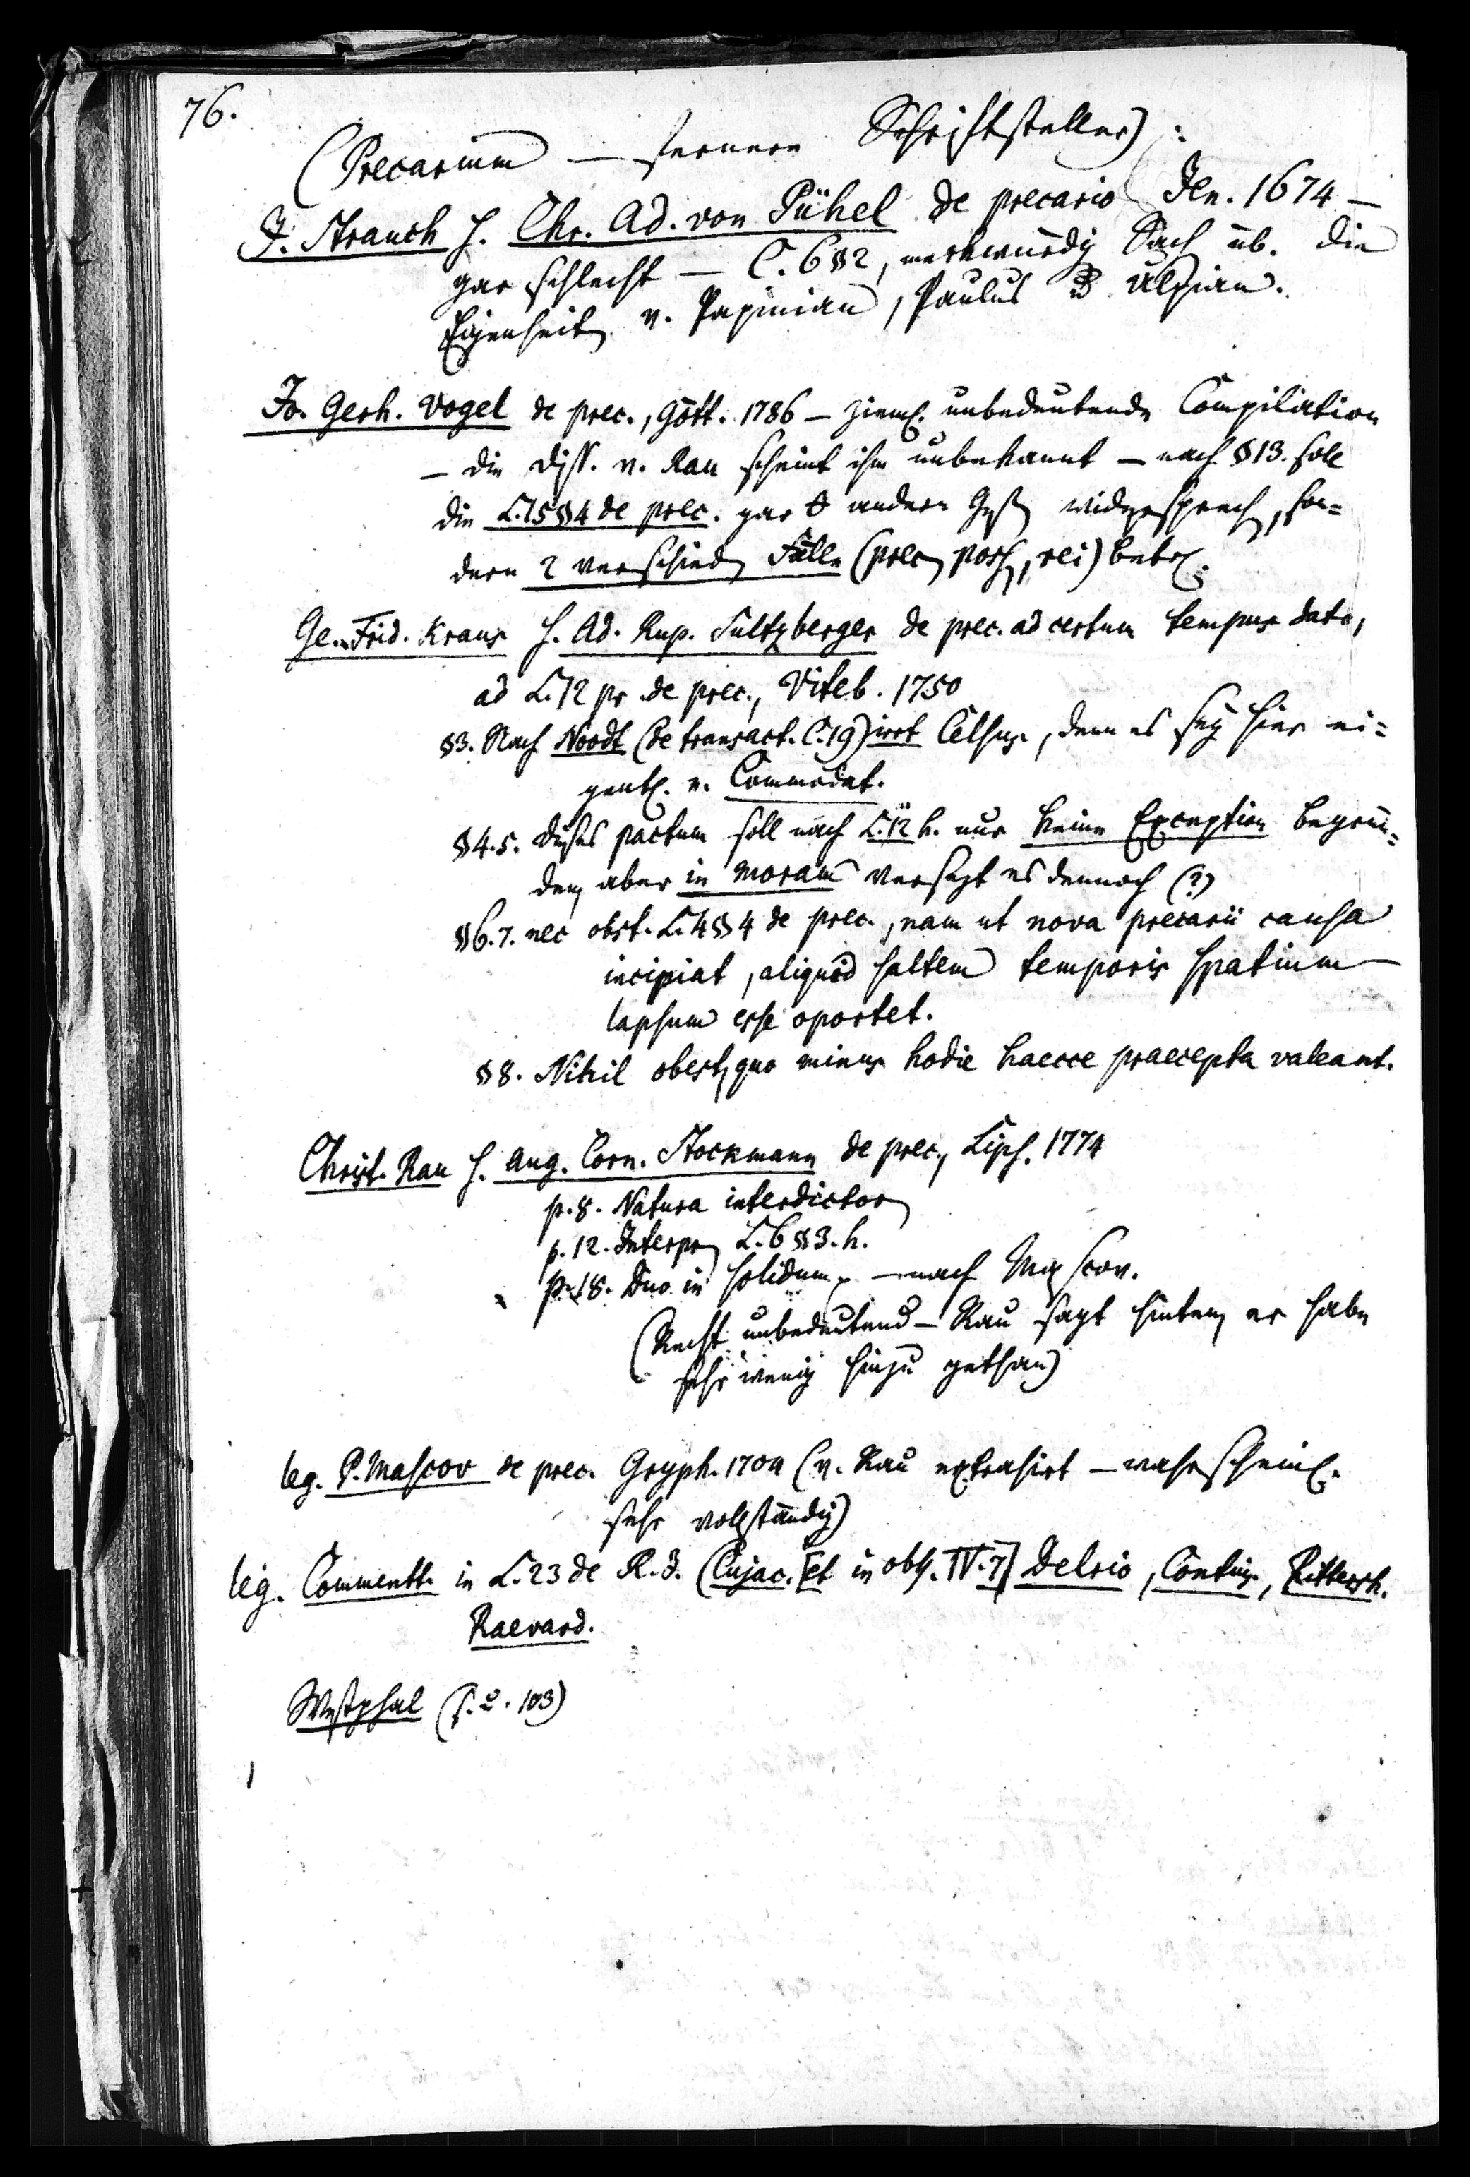 76.
(Precarium — fernere Schriftsteller):
J. Strauch s. Chr. Ad. von Pühel de precario Jen. 1674 —
gar schlecht — C. 6 §2, merkwürdig Sach üb. die
Eigenheit v. Papinian, Paulus u. Ulpian.
Jo. Gerh. Vogel de prec., Gött. 1786 — ziemł. unbedeutende Compilation
— die Diss. v. Rau scheint ihm unbekannt — nach §13. soll
die L. 15 §4 de prec. gar andern widersprech, son=
dern 2 verschied Fälle (prec poss, rei) betr.
Ge. Frid. Kraus s. Ad. Rup. Sultzberger de prec. ad certum tempus dato,
ad L. 12 pr. de prec., Viteb. 1750
§3. Nach Noodt (de transact. C. 19) irrt Celsus, denn es sey hier ei=
gentl. v. Commodat.
§4.5. dieses pactum soll nach L. 12 h. nur keine Exception begrün=
den, aber in moram versezt es dennoch (?)
§6.7. nec obst. L. 4 §4 de prec., nam ut nova precarii causa
incipiat, aliquod saltem temporis spatium
lapsum esse oportet.
§8. Nihil obest, quo minus hodie haecce praecepta valeant.
Christ. Rau s. Aug. Corn. Stockmann de prec., Lips. 1774
p. 8. Natura interdictor
p. 12. Interpr L. 6 §3. h.
p. 18. Duo in solidum — nach Mascov.
(Recht unbedeutend — Rau sagt hinten, er habe
sehr wenig hinzu gethan)
leg. P. Mascov de prec. Gryph. 1704 (v. Rau extrahirt — wahrscheinl.
sehr vollständig)
leg. Commentt. in L. 23 de R. J. (Cujac. [et in obs. IV. 7] Delrio, Contius, Rittersh.
Raevard.
Westphal (S. 2. 103)